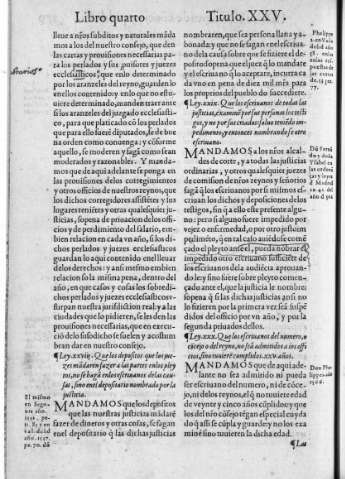 Libro quarto
Titulo. XXV.
lleue a nr̃os subditos y naturales mãda
mos a los del nuestro consejo, que den
las cartas y prouisiones necessarias pa-
ra los perlados y sus prouisores y juezes
ecclesiasticos, que enlo determinado
por los aranzeles del reyno, guarden lo
en ellos contenido y enlo que no estu-
uiere determinado, manden traer ante
si los aranzeles del juzgado ecclesiasti-
co, para que platicado cõ los perlados
que para ello fuerẽ diputados, se de bue
na orden como conuenga: y cõforme
aquello, se moderen y tassẽ como sean
moderados y razonables. Y manda-
mos que de aqui adelante se ponga en
las prouisiones delos corregimientos
y otros officios de nuestros reynos, que
los dichos corregidores assistẽtes y sus
lugares tenientes y otras qualesquier ju
sticias, sopena de priuacion delos offi-
cios y de perdimiento del salario, em-
bien relacion en cada vn año, si los di-
chos perlados y juezes ecclesiasticos
guardan lo aqui contenido enel lleuar
delos derechos: y ansi mesmo embien
relacion so la misma pena, dentro del
año, en que casos y cosas los sobredi-
chos perlados y juezes ecclesiasticos v-
surpan nuestra jurisdicion real: y a las
ciudades que lo pidieren, se les den las
prouisiones necessarias, que en execu-
ciõ delo susodicho se suelen y acostum
bran dar en nuestro consejo.
¶Ley.xxviij. Que los depositos que los jue-
zes mãdaren fazer a las partes en los pley
tos, no se haga en los escriuanos delas cau-
sas, sino en el depositario nombrado por la
justicia.
MANDAMOS que los depositos
que las nuestras justicias mãdarẽ
fazer de dineros y otras cosas, se fagan
enel depositario q̃ las dichas justicias
nombraren, que sea persona llana y a-
bonada: y que no se fagan enel escriua-
no dela causa sobre que se fiziere el de-
posito: sopena que el juez q̃ lo mandare
y el escriuano q̃ lo aceptare, incurra ca
da vno en pena de diez mil mrs̃ para
los proprios del pueblo do succediere.
¶Ley.xxix. Que los escriuanos de todas las
justicias, examinẽ por sus personas los tes-
tigos, y no por sus criados, saluo teniendo im-
pedimento, y entonces nombrando se otro
escriuano.
MANDAMOS a los nr̃os alcal-
des de corte, y a todas las justicias
ordinarias, y otros qualesquier juezes
de comission de nr̃os reynos y señorios
fagã q̃ los escriuanos por si mismos es-
criuan los dichos y deposiciones delos
testigos, sin q̃ a ello este presente algu-
no: pero si alguno fuere impedido por
vejez, o enfermedad, o por otro justo im
pedimẽto, q̃ en tal caso auiẽdose come
çado el pleyto ante el, pueda nõbrar el
impedido otro escriuano suficiẽte de
los escriuanos dela audiẽcia aprouan-
dolo ley si no fuere sobre pleyto comen-
çado ante el, que la justicia le nombre:
sopena q̃ si las dichas justicias ansi no
lo fizieren por la primera vez seã suspẽ
didos del officio por vn año, y por la
segunda priuados dellos.
¶Ley.xxx. Que los escriuanos del numero, o
cõcejo del reyno, no seã admitidos a los offi-
cios, sino tuuierẽ cumplidos .xxv. años.
MANDAMOS que de aqui ade-
lante no sea admitido ni pueda
ser escriuano del numero, ni de cõce-
jo, ni delos reynos, el q̃ no tuuiere edad
de veynte y cinco años cũplidos: y que
los del nr̃o cõsejo tẽgan especial cuyda
do q̃ assi se cũpla y guarde: y no los exa
minẽ sino tuuieren la dicha edad.
¶Ley